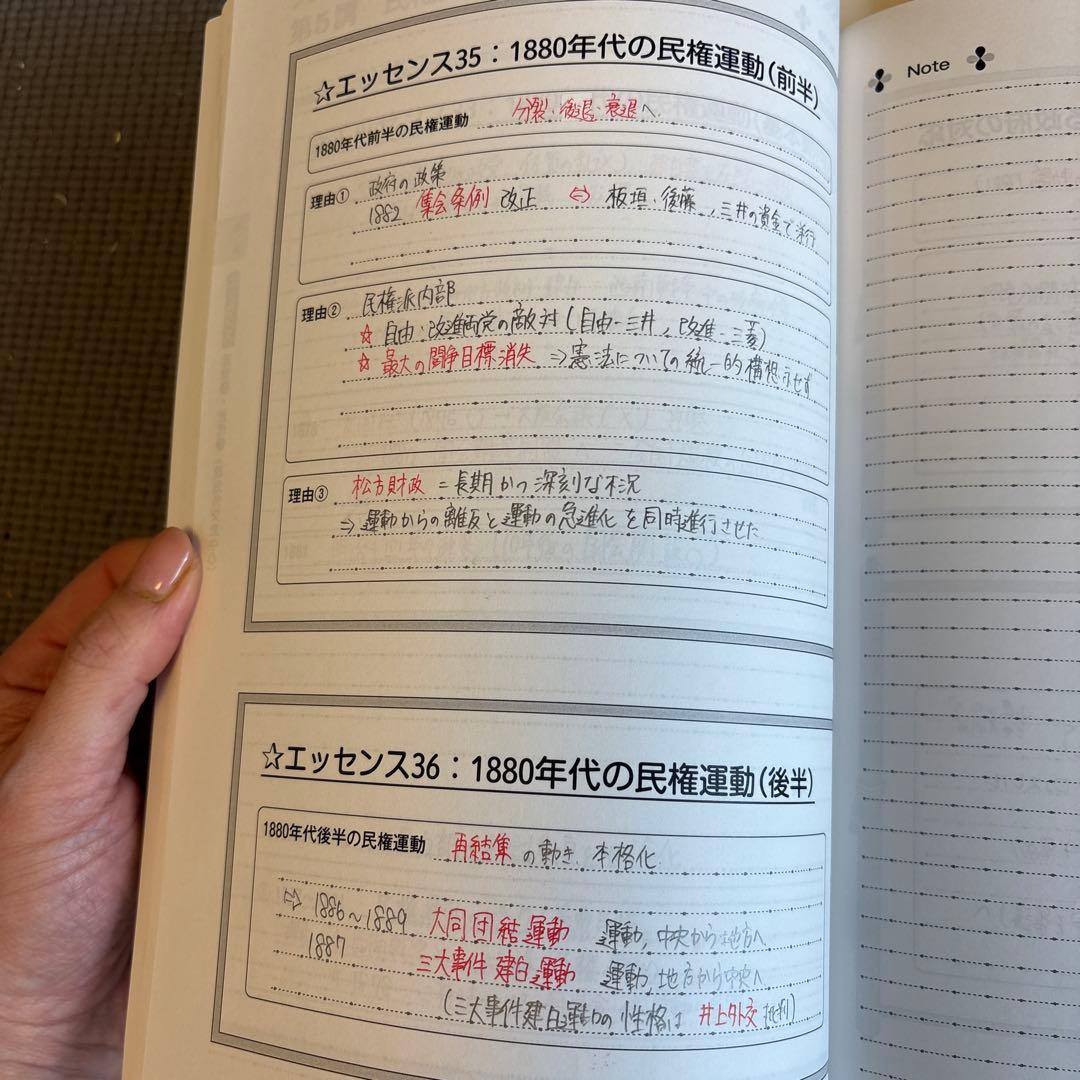 ☆エッセンス35：1880年代の民権運動（前半）
1880年代前半の民権運動 分裂・後退・衰退へ
理由① 政府の政策
1882 集会条例 改正 ⇔ 板垣・後藤, 三井の資金で洋行
理由② 民権派内部
☆ 自由・改進両党の敵対（自由－三井, 改進－三菱）
☆ 最大の闘争目標消失 ⇒憲法についての統一的構想示せず
理由③ 松方財政 ＝長期かつ深刻な不況
⇒運動からの離反と運動の急進化を同時進行させた
☆エッセンス36：1880年代の民権運動（後半）
1880年代後半の民権運動 再結集の動き、本格化
⇨ 1886～1889 大同団結運動 運動, 中央から地方へ
1887 三大事件建白運動 運動, 地方から中央へ
（三大事件建白運動の性格は 井上外交批判）
Note